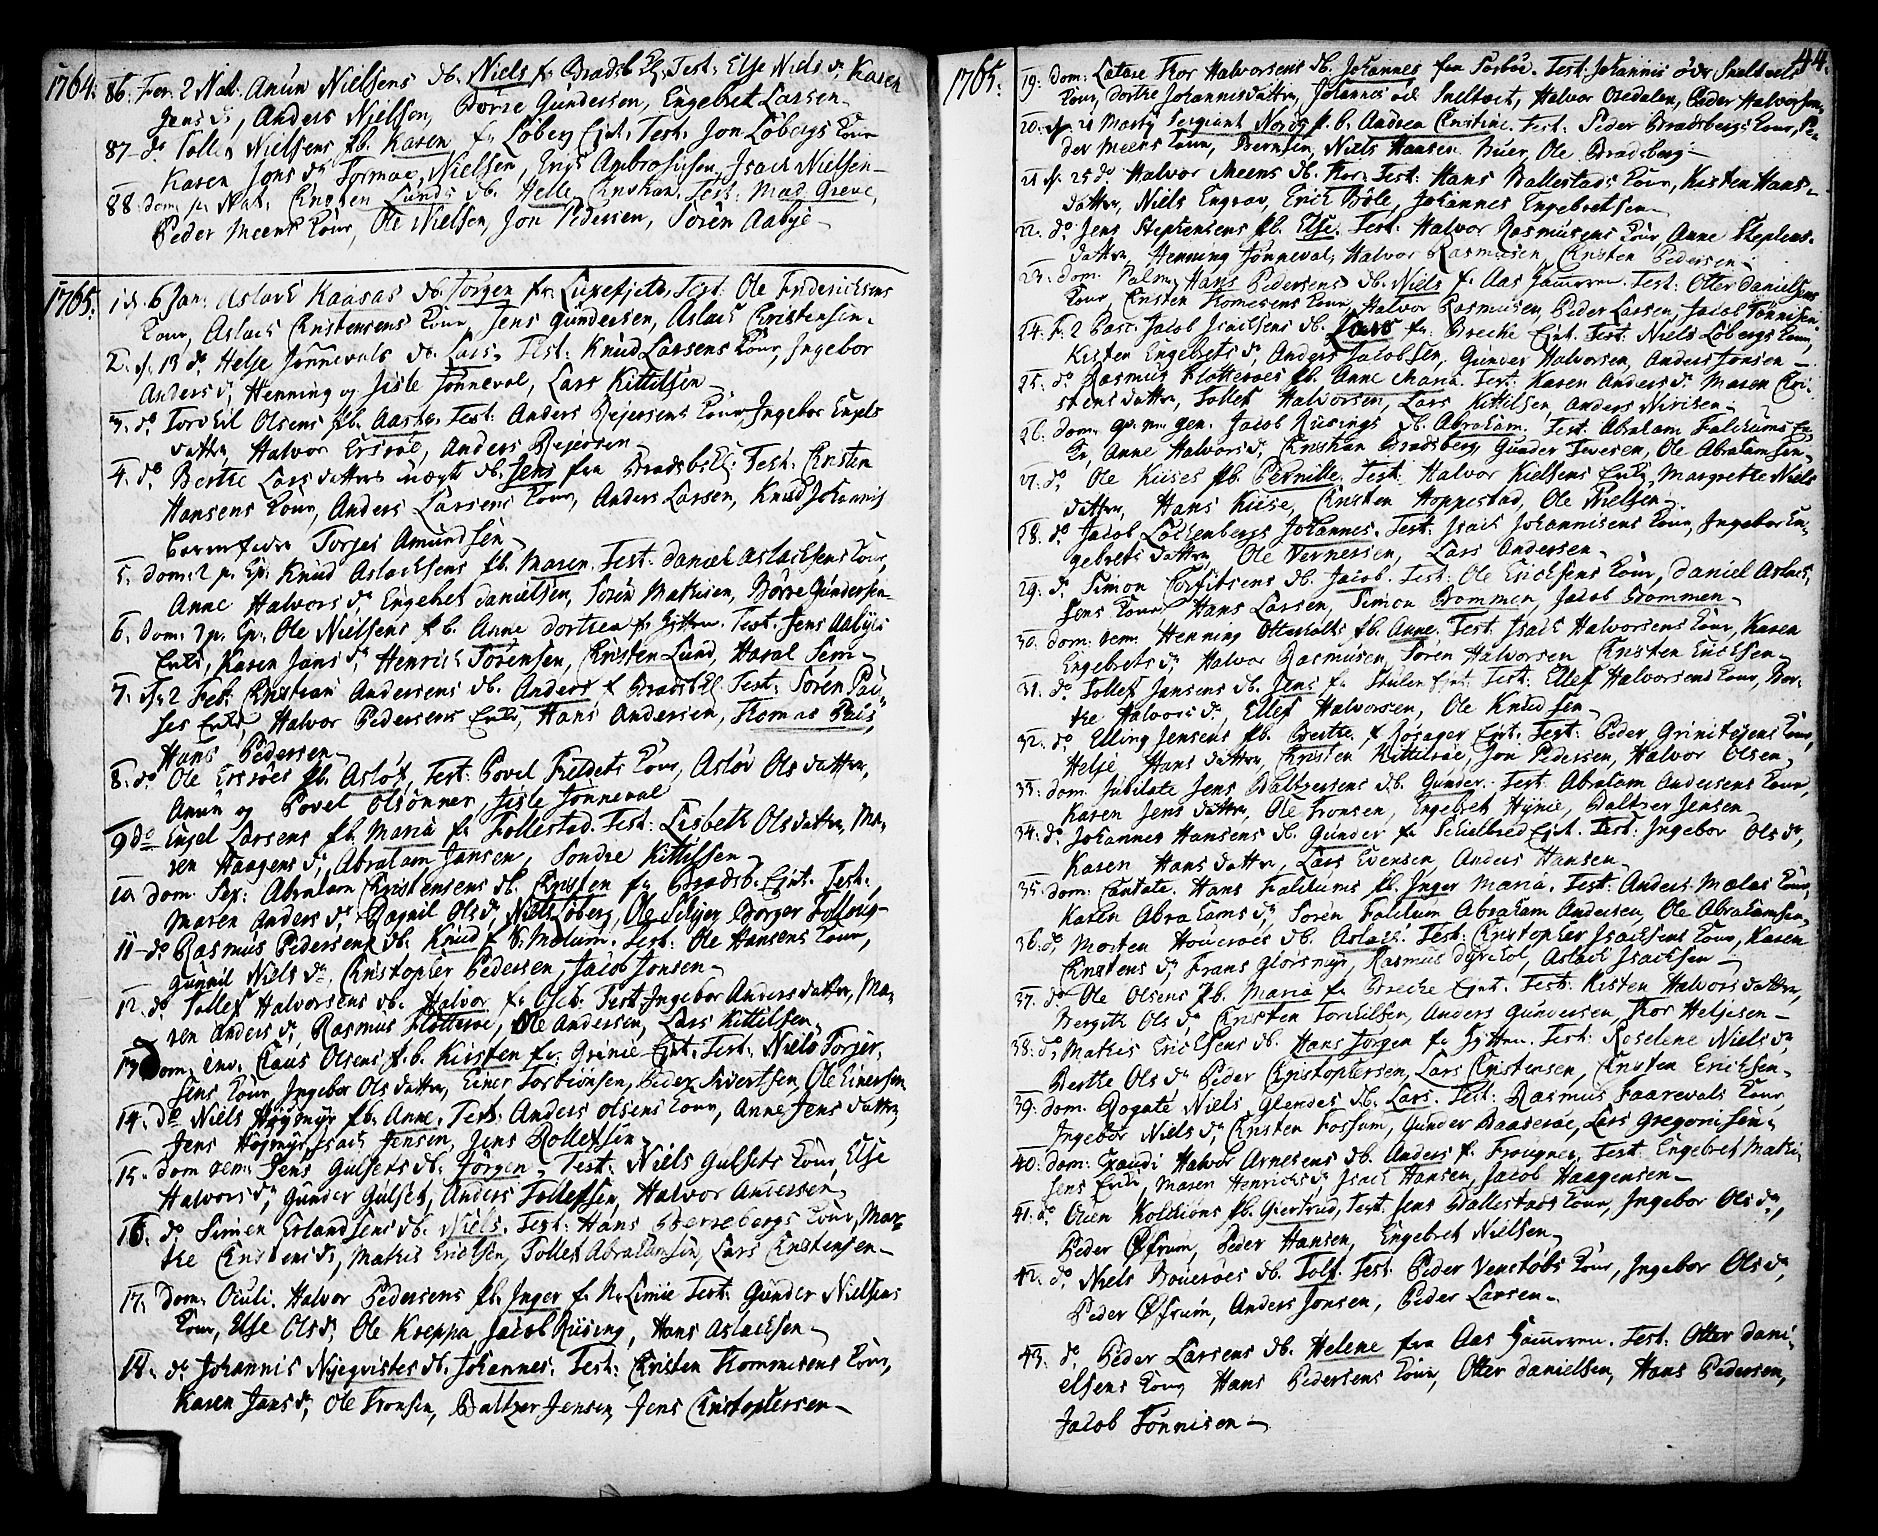 1764. 86. Fer. 2 Nat. Amun Nielsens db. Niels fr Bradsb. Test: Else Niels dr Karen
Jens dr, Anders Nielsen, Børre Gundersen, Engebret Larsen
87 - do Tollef Nielsens pb. Karen fr Løberg Ejnt. Test: Jon Løbergs Kone
Karen Jons dr Nielsen, Ambrosiusen, Isach Nielsen
88 - dom. p. Nat. Cristen Lunds db. Helle Test: Mad. Greve,
Peder Meens Kone, Ole Nielsen, Jon Pedersen, Søren Aabye
1765. 1 d. 6 Jan: Aslach Kaasas db. Jørgen fr. Luxefjeld, Test: Ole Fredericksens
Kone, Aslach Cristensens Kone, Jens Gundersen, Aslach Christensen
2. d. 13 do Helje Jønnevals db. Lars, Test: Knud Larsens Kone, Ingebor
Anders dr Henning og Jisle Jønneval, Lars Kittilsen
3. do Torkil Olsens pb. Aaste. Test: Anders Rejersens Kone, Ingebor Engels
datter, Halvor Anders Rejersen
4. do Berthe Lars datters uægte db. Jens fra Bradsb. Test: Cristen
Hansens Kone, Anders Larsens Kone, Anders Larsen, Knud Johannis
Barnefader Torjer Amundsen
5. dom: 2 p. Ep: Knud Aslachsens pb. Maren. Test: Daniel Aslachsens Kone,
Anne Halvors dr Engebret Danielsen, Søren Mathisen, Børre Gundersen
6. dom. 3 p. Ep. Ole Nielsens pb. Anne Dorthea fr Test: Jens Aabyes
Enke, Karen Jans dr, Henrich Sørensen, Cristen Lund, Haral Sem
7. d. 2 Feb. Cristian Andersens db. Anders f. Bradsb. Test: Søren
Enke, Halvor Pedersens Enke, Hans Andersen, Thomas
Hans Pedersen
8. do Ole Ersroes pb. Aslof, Test: Povel Kone, Asløv Ols datter,
Amun og Povel Olsønner, Jisle Jønneval
9 do Engel Larsens pb. Maria fr Follestad. Test: Lisbeth Ols datter, Ma-
ren Haagens dr, Abraham Jansen, Sondre Kittilsen
10 Dom. Sep: Abraham Christensens db. Cristen fr Bradsb. Ejnt. Test:
Maren Anders dr, Ragnil Ols dr, Niels Løberg, Ole Borger
11 - do Rasmus Pedersens db. Knud f. Test: Ole Hansens Kone,
Gunnil Niels dr Christopher Pedersen, Jacob Jonsen
12. do Tollef Halvorsens db. Halvor fr. Test: Ingebor Anders datter, Ma-
ren Anders dr Rasmus Flotteroe, Ole Andersen, Lars Kittilsen
13 Dom. inv. Claus Olsens pb. Kirsten fr. Grinie Ejnt. Test: Niels Torjer-
sens Kone, Ingebor Ols datter, Einer Torbiønsen, Peder Sivertsen, Ole Einersen
14. do Niels Høgmyr pb. Anne. Test: Anders Olsens Kone, Anne Jens datter,
Jens Høgmyr, Isach Jensen, Jens Rollefsen
15. Dom rem. Jens Gulsets db. Jørgen. Test: Niels Gulsets Kone, Else
Halvors dr Gunder Gulset, Anders Tollefsen, Halvor Andersen
16. do Simen Erlandsens db. Niels. Test: Hans Kone, Mar-
the Cristens dr, Mathis Ericksen, Tollef Abrahamsen, Lars Cristensen
17. Dom. Oculi. Halvor Pedersens pb. Inger f. N. Limie Test: Gunder Nielsens
Kone, Else Ols dr Ole Koeppa, Jacob Riising, Hans Aslachsen
18. do Johannis Nyeqvistes db. Johannes. Test: Cristen Thommesens Kone,
Karen Jans dr, Ole Tronsen, Baltzer Jensen, Jens Cristophersen
44.
1765. 19. dom: Lætare Thor Halvorsens db. Johannes fra Test: Johannis
Kone, Dorthe Johannisdatter, Johannes Halvor Osedalen, Peder Halvorsen
20. d. 21 Marty Sergiant pb. Andrea Cristine. Test: Peder Bradsbergs Kone, Pe-
der Meens Kone, Berntsen, Niels Hansen Buer, Ole Bradsberg
21 d. 25 do Halvor Meens db. Thor. Test: Hans Ballestads Kone, Kisten Hans-
datter, Niels Engrav, Erich Bøle, Johannes Engebretsen
22. do Jens Stephensens pb. Else. Test: Halvor Rasmusens Kone, Anne Stephens-
datter, Henning Jønneval, Halvor Rasmusen, Cristen Pedersen
23. dom. Palm. Hans Pedersens db. Niels f. Aas Gammen. Test: Otter Danielsens
Kone, Cristen Thomesens Kone, Halvor Rasmusen, Peder Larsen, Jacob Tønnisen
24. F. 2 Pasc. Jacob Isachsens db. Lars fr. Brecke Ejnt. Test: Niels Løbergs Kone,
Kisten Engebrets dr Anders Jacobsen, Gunder Halvorsen, Anders Jonsen
25. do Rasmus Flotteroes pb. Anne Maria. Test: Karen Anders dr Maren Cri-
stens datter, Tollef Halvorsen, Lars Kittilsen, Anders
26. dom. qv. m. gen. Jacob Riisings db. Abraham. Test: Abraham Falckums En-
ke, Anne Halvors dr Christian Bradsberg, Gunder Ole Abrahamsen
27. do Ole Kiises pb. Pernille. Test: Halvor Kielsens Enke, Margrethe Niels
datter, Hans Kiise, Cristen Hoppestad, Ole Nielsen
28. do Jacob Lochenbergs Johannes. Test: Isach Johannisens Kone, Ingebor En-
gebrets datter Ole Vernersen, Lars Andersen
29. do Simon Torfindsens db. Jacob. Test: Ole Ericksens Kone, Daniel Aslach-
sens Kone Hans Larsen, Simon Brommen, Jacob Brommen
30. dom. rem. Henning Otterholts pb. Anne. Test: Isach Halvorsens Kone, Karen
Engebrets dr Halvor Rasmusen, Søren Halvorsen Cristen Ericksen
31. do Tollef Jansens db. Jens fr Ejnt. Test: Ellef Halvorsens Kone, Ber-
the Halvors dr, Ellef Halvorsen, Ole Knudsen
32. do Elling Jensens pb. Berthe f. Røsager Ejnt. Test: Peder Grinitejens Kone,
Helje Hans datter, Cristen Kittilsøe, Jon Pedersen, Halvor Olsen
33. dom. Jubilate Jens Baltzersens db. Gunder. Test: Abraham Andersens Kone,
Karen Jens datter, Ole Tronsen, Engebret Hynie, Baltzer Jensen
34. do Johannes Hansens db. Gunder fr Schelbred Ejnt. Test: Ingebor Ols dr,
Karen Hans datter, Lars Evensen, Anders Hansen
35. dom. Cantate. Hans Falckums pb. Inger Maria. Test: Anders Mælas Kone,
Karen Abrahams dr, Søren Falckum Abraham Andersen, Ole Abrahamsen
36. do, Morten Houerøes db. Aslach. Test: Cristopher Isachsens Kone, Karen
Cristens dr, Frans Glorsmyr, Rasmus Dyrkol, Aslach Isachsen
37. do Ole Olsens pb. Maria fr Brecke Ejnt. Test: Kisten Halvors datter,
Bergith Ols dr Cristen Torkilsen, Anders Gundersen, Thor Heljesen
38. do, Mathis Ericksens db. Hans Jørgen fr Test: Roselene Niels dr
Berthe Ols dr Peder Cristophersen, Lars Cristensen, Cristen Ericksen
39. dom. Rogate Niels Glendes db. Lars. Test: Rasmus Faarevals Kone,
Ingebor Niels dr, Cristen Fossum, Gunder Baaserøe, Lars Gregorisen
40. dom: Exaudi Halvor Arnesens db. Anders f. Frougner Test: Engebret Mathi-
sens Enke, Maren Henrichs dr Isach Hansen, Jacob Haagensen
41. do Ouen Kolkiøns pb. Giertrud, Test: Jens Ballestads Kone, Ingebor Ols dr,
Peder Øfrum, Peder Hansen, Engebret Nielsen
42. do Niels Bouerøes db. Tolf. Test: Peder Venstøbs Kone, Ingebor Ols dr,
Peder Øfrum, Anders Jonsen, Peder Larsen
43. do Peder Larsens db. Helene fra Aas Gameren. Test: Otter Dani-
elsens Kone Hans Pedersens Kone, Otter Danielsen, Hans Pedersen,
Jacob Tønnisen